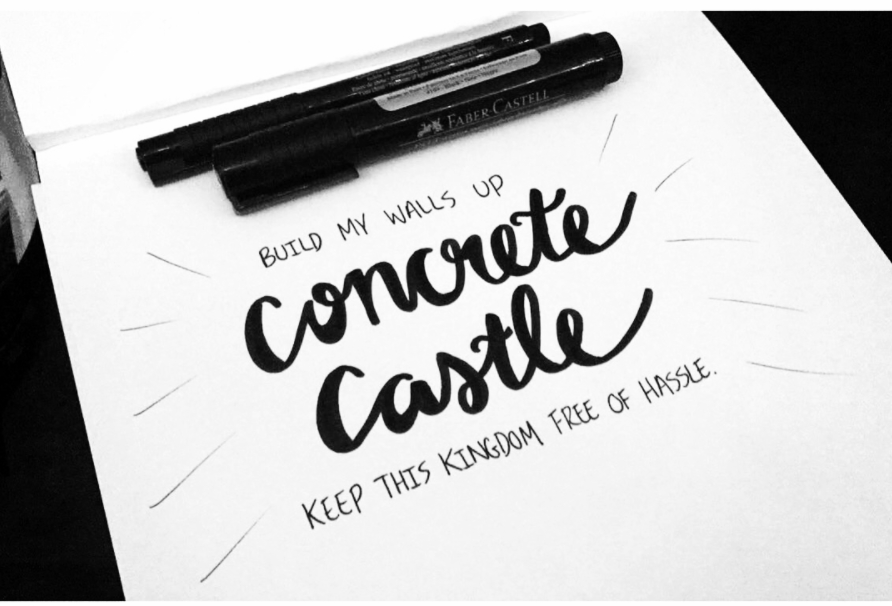 FABER-CASTELL
BUILD MY WALLS UP
concrete
castle
KEEP THIS KINGDOM FREE OF HASSLE.